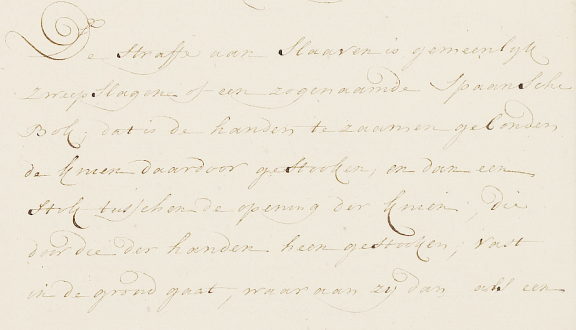 De Straffe aan Slaaven is gemeenlijk
zweepslagen of een zogenaamde Spaansche
Bok; dat is de handen te zaamen gebonden
de knien daardoor gestooken, en dan een
Stok tusschen de opening der knien, die
door die der handen heen gestooken, vast
in de grond gaat, waar aan zij dan als een